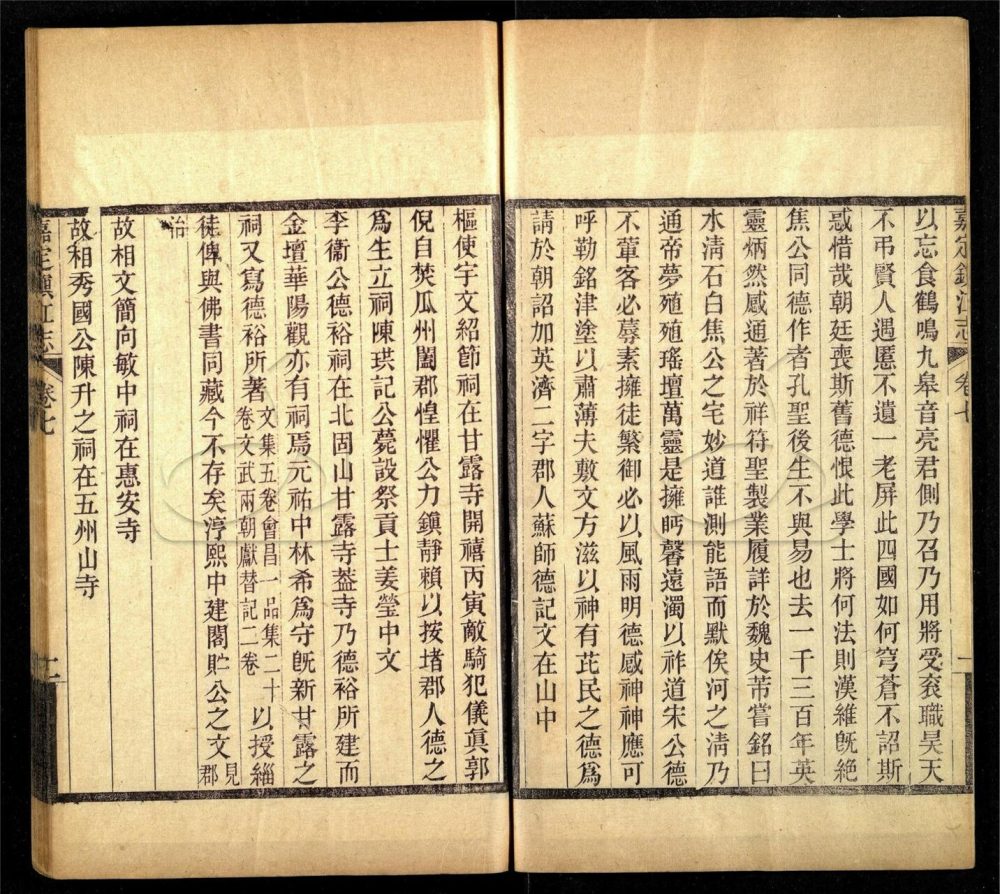 嘉定鎮江志 卷七
以忘食鶴鳴九皋音亮君側乃召乃用將受袞職昊天
不弔賢人遇慝不遺一老屏此四國如何穹蒼不詔斯
惑惜哉朝廷喪斯舊德恨此學士將何法則漢維既絶
焦公同德作者孔聖後生不與易也去一千三百年英
靈炳然感通著於祥符聖製業履詳於魏史芾嘗銘曰
水淸石白焦公之宅妙道誰測能語而默俟河之淸乃
通帝夢殖殖瑤壇萬靈是擁眄馨遠濁以祚道宋公德
不葷客必蓐素擁徒繁御必以風雨明德感神神應可
呼勒銘津塗以肅薄夫敷文方滋以神有芘民之德爲
請於朝詔加英濟二字郡人蘇師德記文在山中
樞使宇文紹節祠在甘露寺開禧丙寅敵騎犯儀眞郭
倪自焚瓜州闔郡惶懼公力鎭靜賴以按堵郡人德之
爲生立祠陳珙記公薨設祭貢士姜瑩中文
李衞公德裕祠在北固山甘露寺葢寺乃德裕所建而
金壇華陽觀亦有祠焉元祐中林希爲守既新甘露之
祠又寫德裕所著文集五卷會昌一品集二十卷文武兩朝獻替記二卷以授緇
徒俾與佛書同藏今不存矣淳熙中建閣貯公之文見郡
治
故相文簡向敏中祠在惠安寺
故相秀國公陳升之祠在五州山寺
嘉定鎭江志 卷七